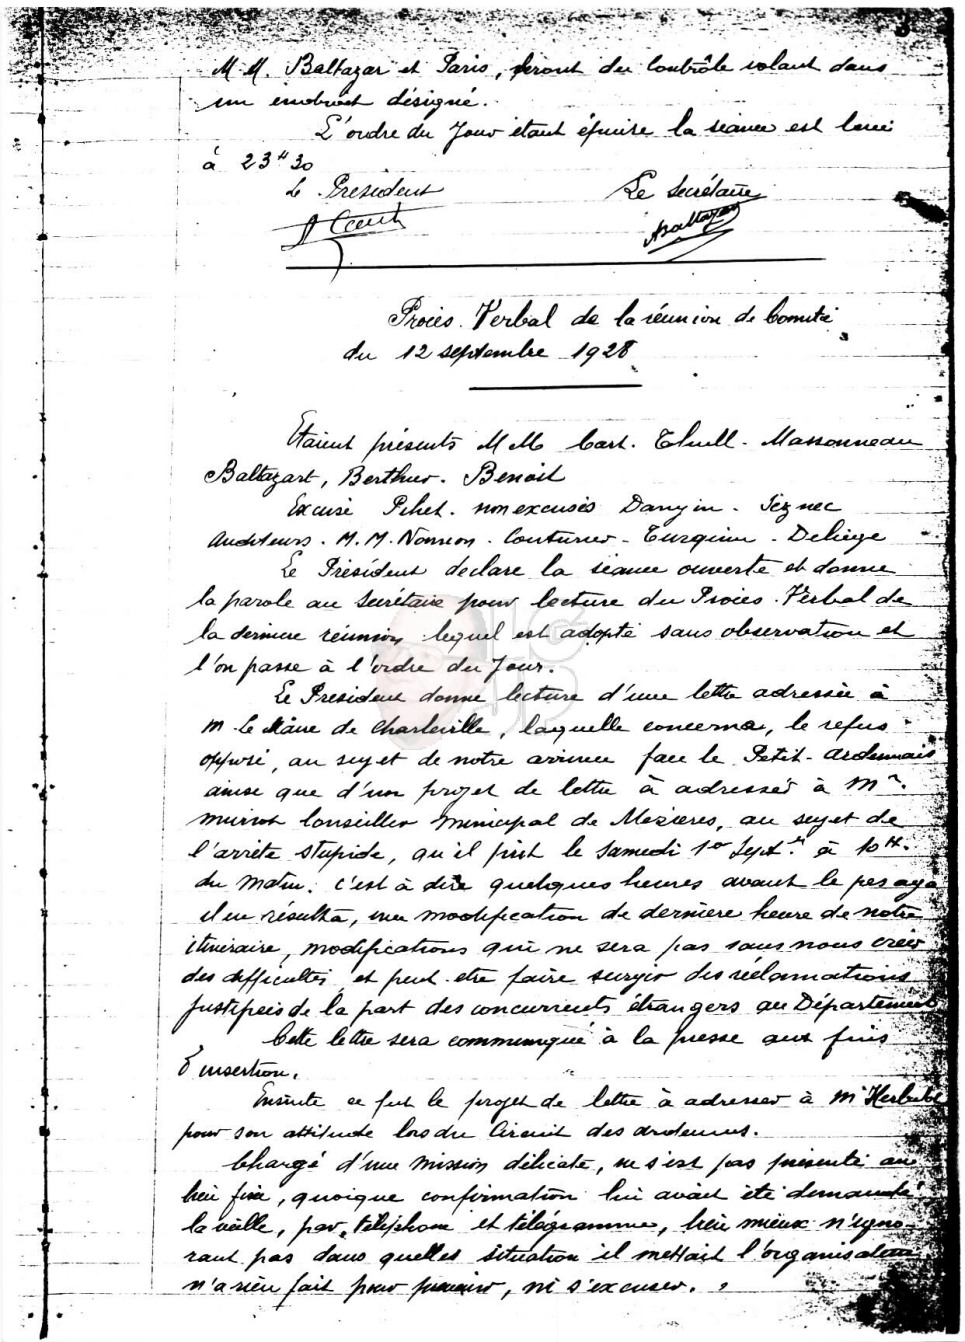 M.M. Baltazar et Paris, feront du Contrôle volant dans
un endroit désigné.
L'ordre du Jour étant épuisé la séance est levée
à 23H30
Le Président
Le Secrétaire
A Cart
ABaltazar
Procès. Verbal de la réunion de Comité
du 12 septembre 1928
Etaient présents M M Cart. Thull. Massonneau
Baltazart, Berthur. Benoit
Excusé Pihet. non excusés Danyin. Seznec
Auditeurs. M.M. Couturier - Turquin. Deliège
Le Président déclare la séance ouverte et donne
la parole au Secrétaire pour lecture du Procès. Verbal de
la dernière réunion, lequel est adopté sans observation et
l'on passe à l'ordre du Jour.
Le Président donne lecture d'une lettre adressée à
M. Le Maire de Charleville, laquelle concerna, le refus
opposé, au sujet de notre arrivée face le Petit-Ardennais
ainsi que d'un projet de lettre à adresser à Mr.
Conseiller Municipal de Mézières, au sujet de
l'arrêté stupide, qu'il prit le Samedi 1er Sept. à 10H.
du Matin. c'est à dire quelques heures avant le pesage
il en résulta, une modification de dernière heure de notre
itinéraire, modifications qui ne sera pas sans nous créer
des difficultés et peut être faire surgir des réclamations
Justifiées de la part des concurrents étrangers au Département
Cette lettre sera communiqué à la presse aux fins
d'insertion.
Ensuite ce fut le projet de lettre à adresser à Mr
pour son attitude lors du Circuit des Ardennes.
Chargé d'une mission délicate, ne s'est pas présenté au
lieu fixé, quoique confirmation lui avait été demandé
la veille, par téléphone et télégramme, bien mieux n'igno-
rant pas dans quelles situation il mettait l'organisation
n'a rien fait pour prévenir, ni s'excuser.